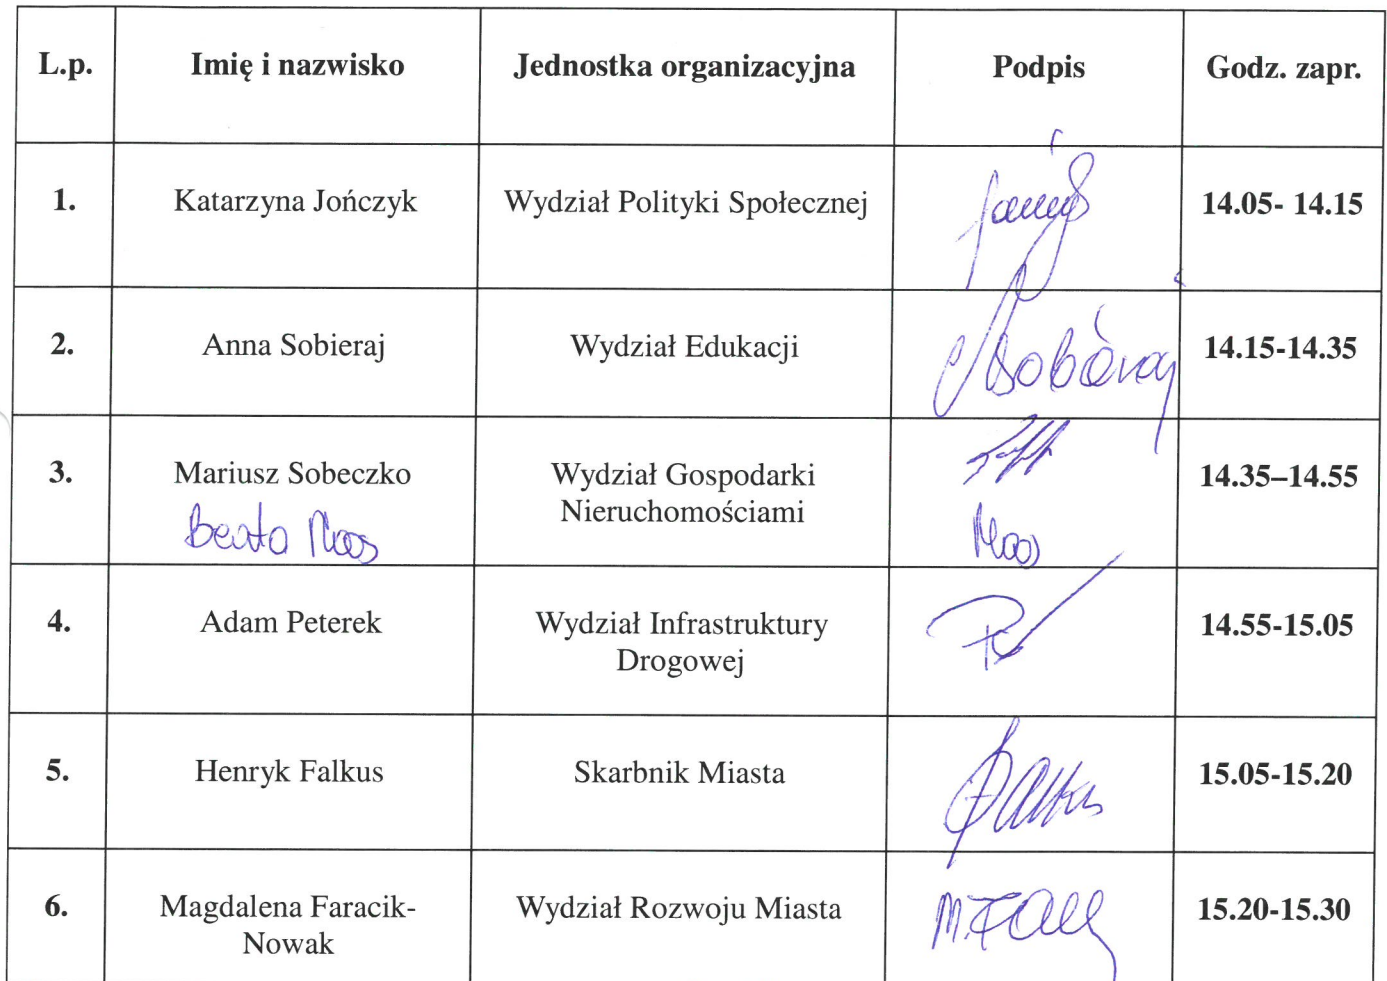 L.p. Imię i nazwisko Jednostka organizacyjna Podpis Godz. zapr.
1. Katarzyna Jończyk Wydział Polityki Społecznej 14.05- 14.15
2. Anna Sobieraj Wydział Edukacji Sobieraj 14.15-14.35
3. Mariusz Sobeczko Wydział Gospodarki 14.35–14.55
Nieruchomościami
Beata Moos Moos
4. Adam Peterek Wydział Infrastruktury 14.55-15.05
Drogowej
5. Henryk Falkus Skarbnik Miasta 15.05-15.20
6. Magdalena Faracik- Wydział Rozwoju Miasta 15.20-15.30
Nowak